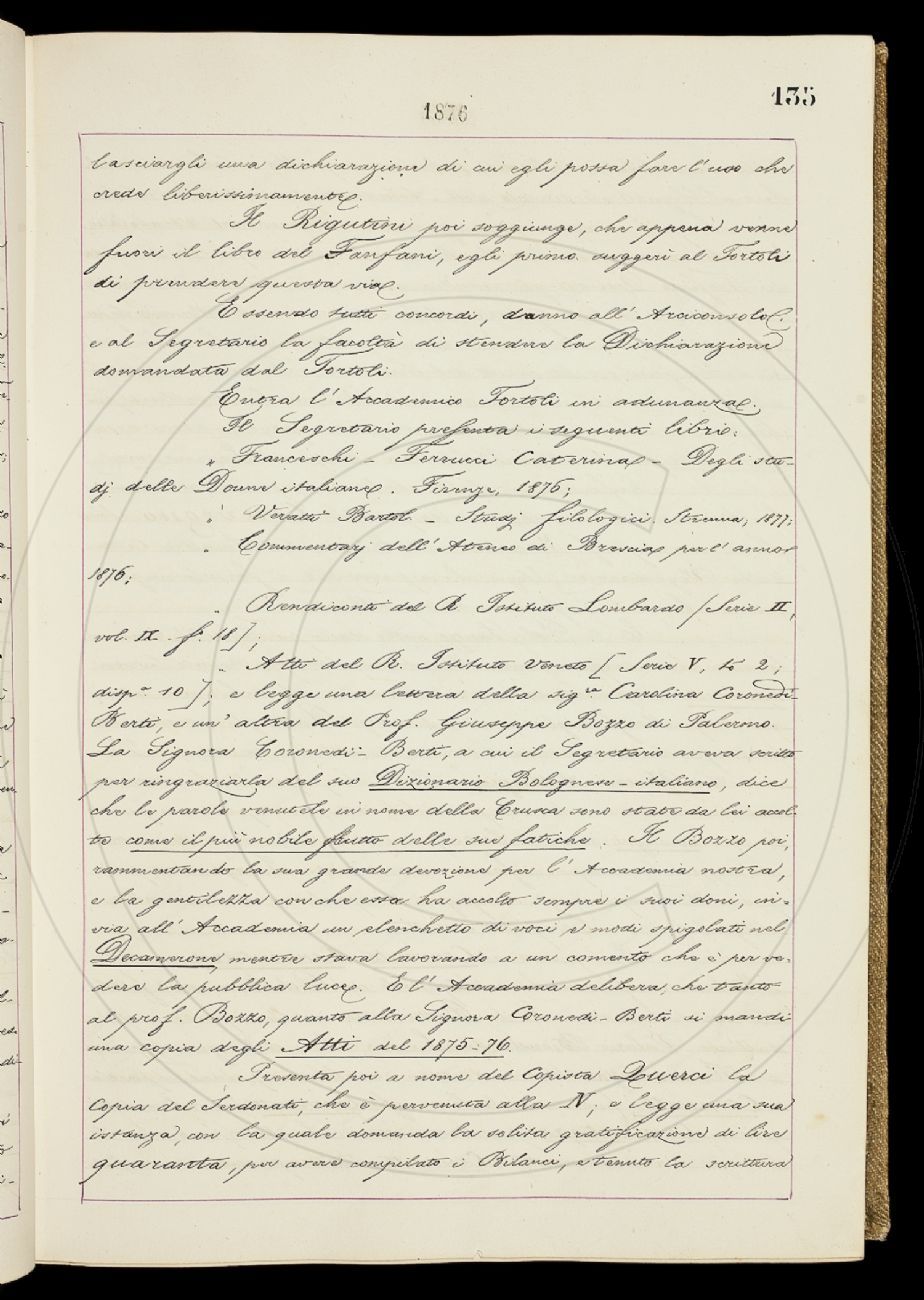 135
1876
lasciargli una dichiarazione di cui egli possa fare l'uso che
crede liberissimamente.
Il Rigutini poi soggiunge, che appena venne
fuori il libro del Fanfani, egli primo suggerì al Tortoli
di prendere questa via.
Essendo tutti concordi, danno all'Arciconsolo
e al Segretario la facoltà di stendere la Dichiarazione
domandata dal Tortoli.
Entra l'Accademico Tortoli in adunanza.
Il Segretario presenta i seguenti libri:
" Franceschi - Ferrucci Caterina - Degli stu-
dj delle Donne italiane. Firenze, 1876;
" Veratti Bartol. - Studj filologici. Strenna, 1877;
" Commentarj dell'Ateneo di Brescia per l'anno
1876;
" Rendiconti del R. Istituto Lombardo [Serie II,
vol. IX. f.º 18];
" Atti del R. Istituto Veneto [Serie V, to 2;
disp.ª 10]; e legge una lettera della sig.ra Carolina Coronedi-
Berti, e un'altra del Prof. Giuseppe Bozzo di Palermo.
La Signora Coronedi-Berti, a cui il Segretario aveva scritto
per ringraziarla del suo Dizionario Bolognese-italiano, dice
che le parole venutele in nome della Crusca sono state da lei accol-
te come il più nobile frutto delle sue fatiche. Il Bozzo poi,
rammentando la sua grande devozione per l'Accademia nostra,
e la gentilezza con che essa ha accolto sempre i suoi doni, in-
via all'Accademia un elenchetto di voci e modi spigolati nel
Decamerone, mentre stava lavorando a un comento che è per ve-
dere la pubblica luce. E l'Accademia delibera, che tanto
al prof. Bozzo, quanto alla Signora Coronedi-Berti si mandi
una copia degli Atti del 1875-76.
Presenta poi a nome del Copista Querci la
Copia del Serdonati, che è pervenuta alla N; e legge una sua
istanza, con la quale domanda la solita gratificazione di lire
quaranta, per avere compilato i Bilanci, e tenuto la scrittura